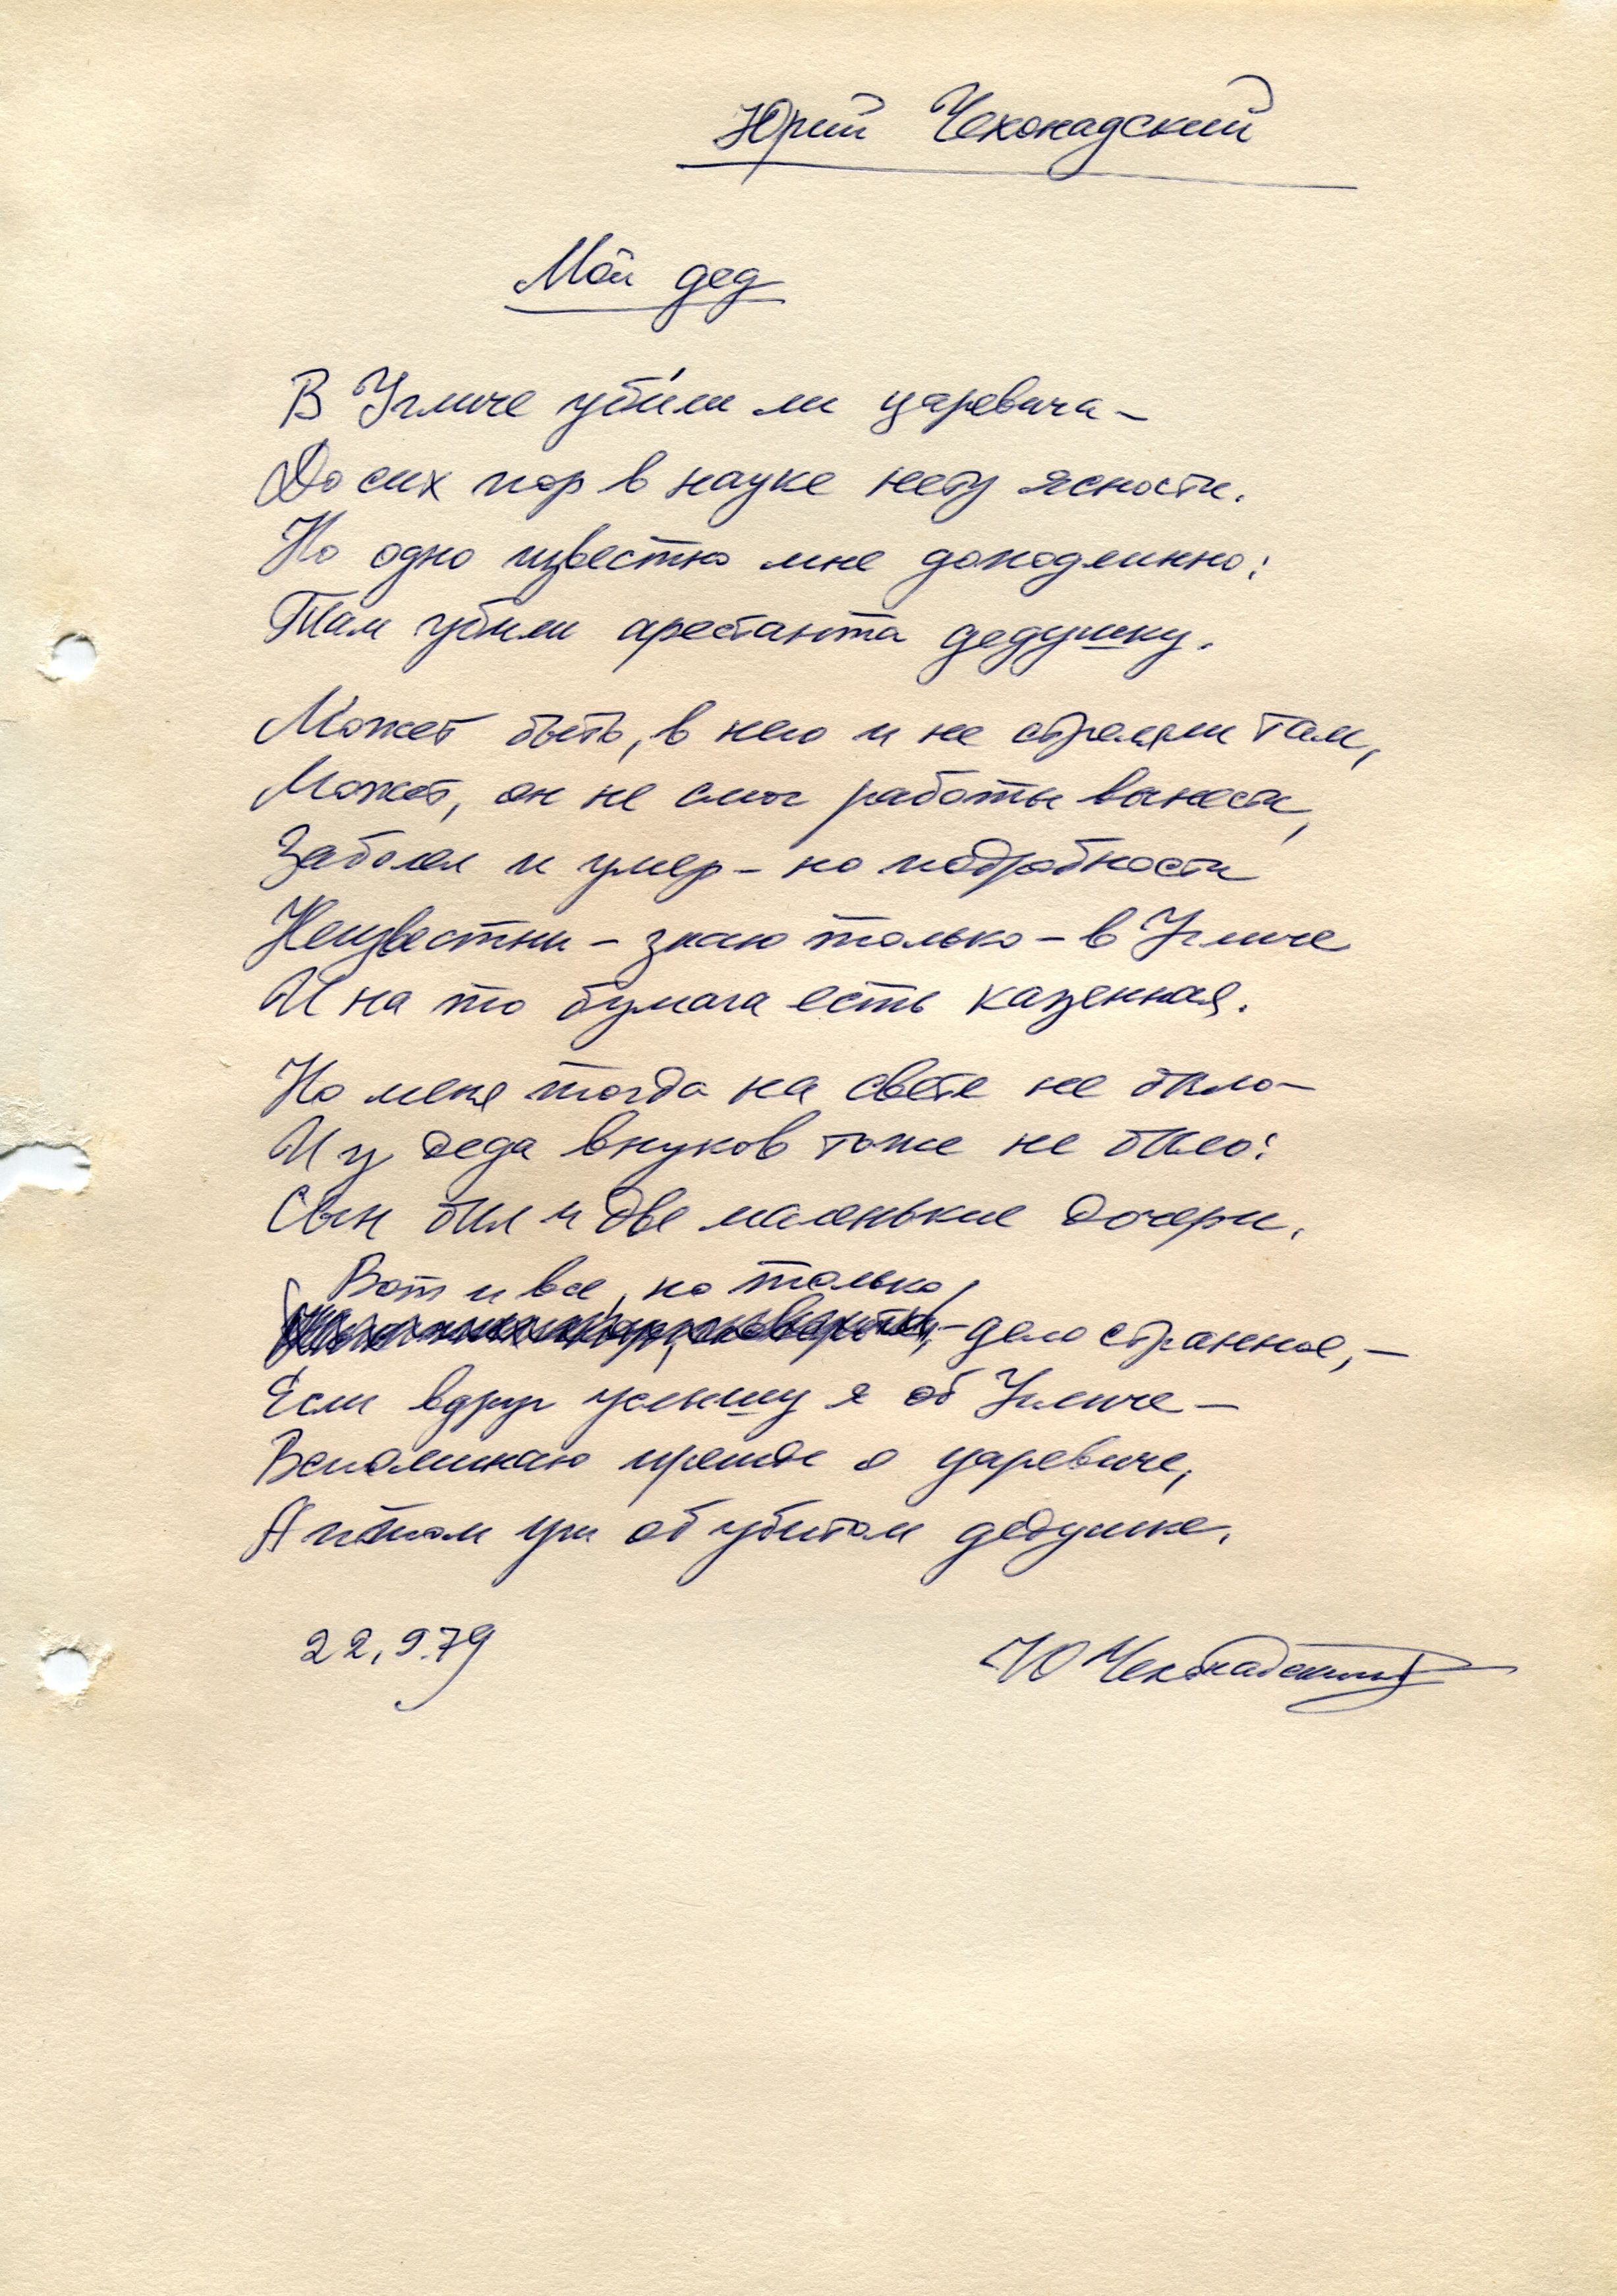 Юрий Чехонадский
Мой дед
В Угличе уби́ли ли царевича –
До сих пор в науке нету ясности.
Но одно известно мне доподлинно:
Там убили арестанта дедушку.
Может быть, в него и не стреляли там,
Может, он не смог работы вынести,
Заболел и умер – но подробности
Неизвестны – знаю только – в Угличе
И на то бумага есть казенная.
Но меня тогда на свете не было –
И у деда внуков тоже не было:
Сын был и две маленькие дочери.
Вот и все, но только,
– дело странное, –
Если вдруг услышу я об Угличе –
Вспоминаю прежде о царевиче,
А потом уж об убитом дедушке.
22.9.79
Ю Чехонадский